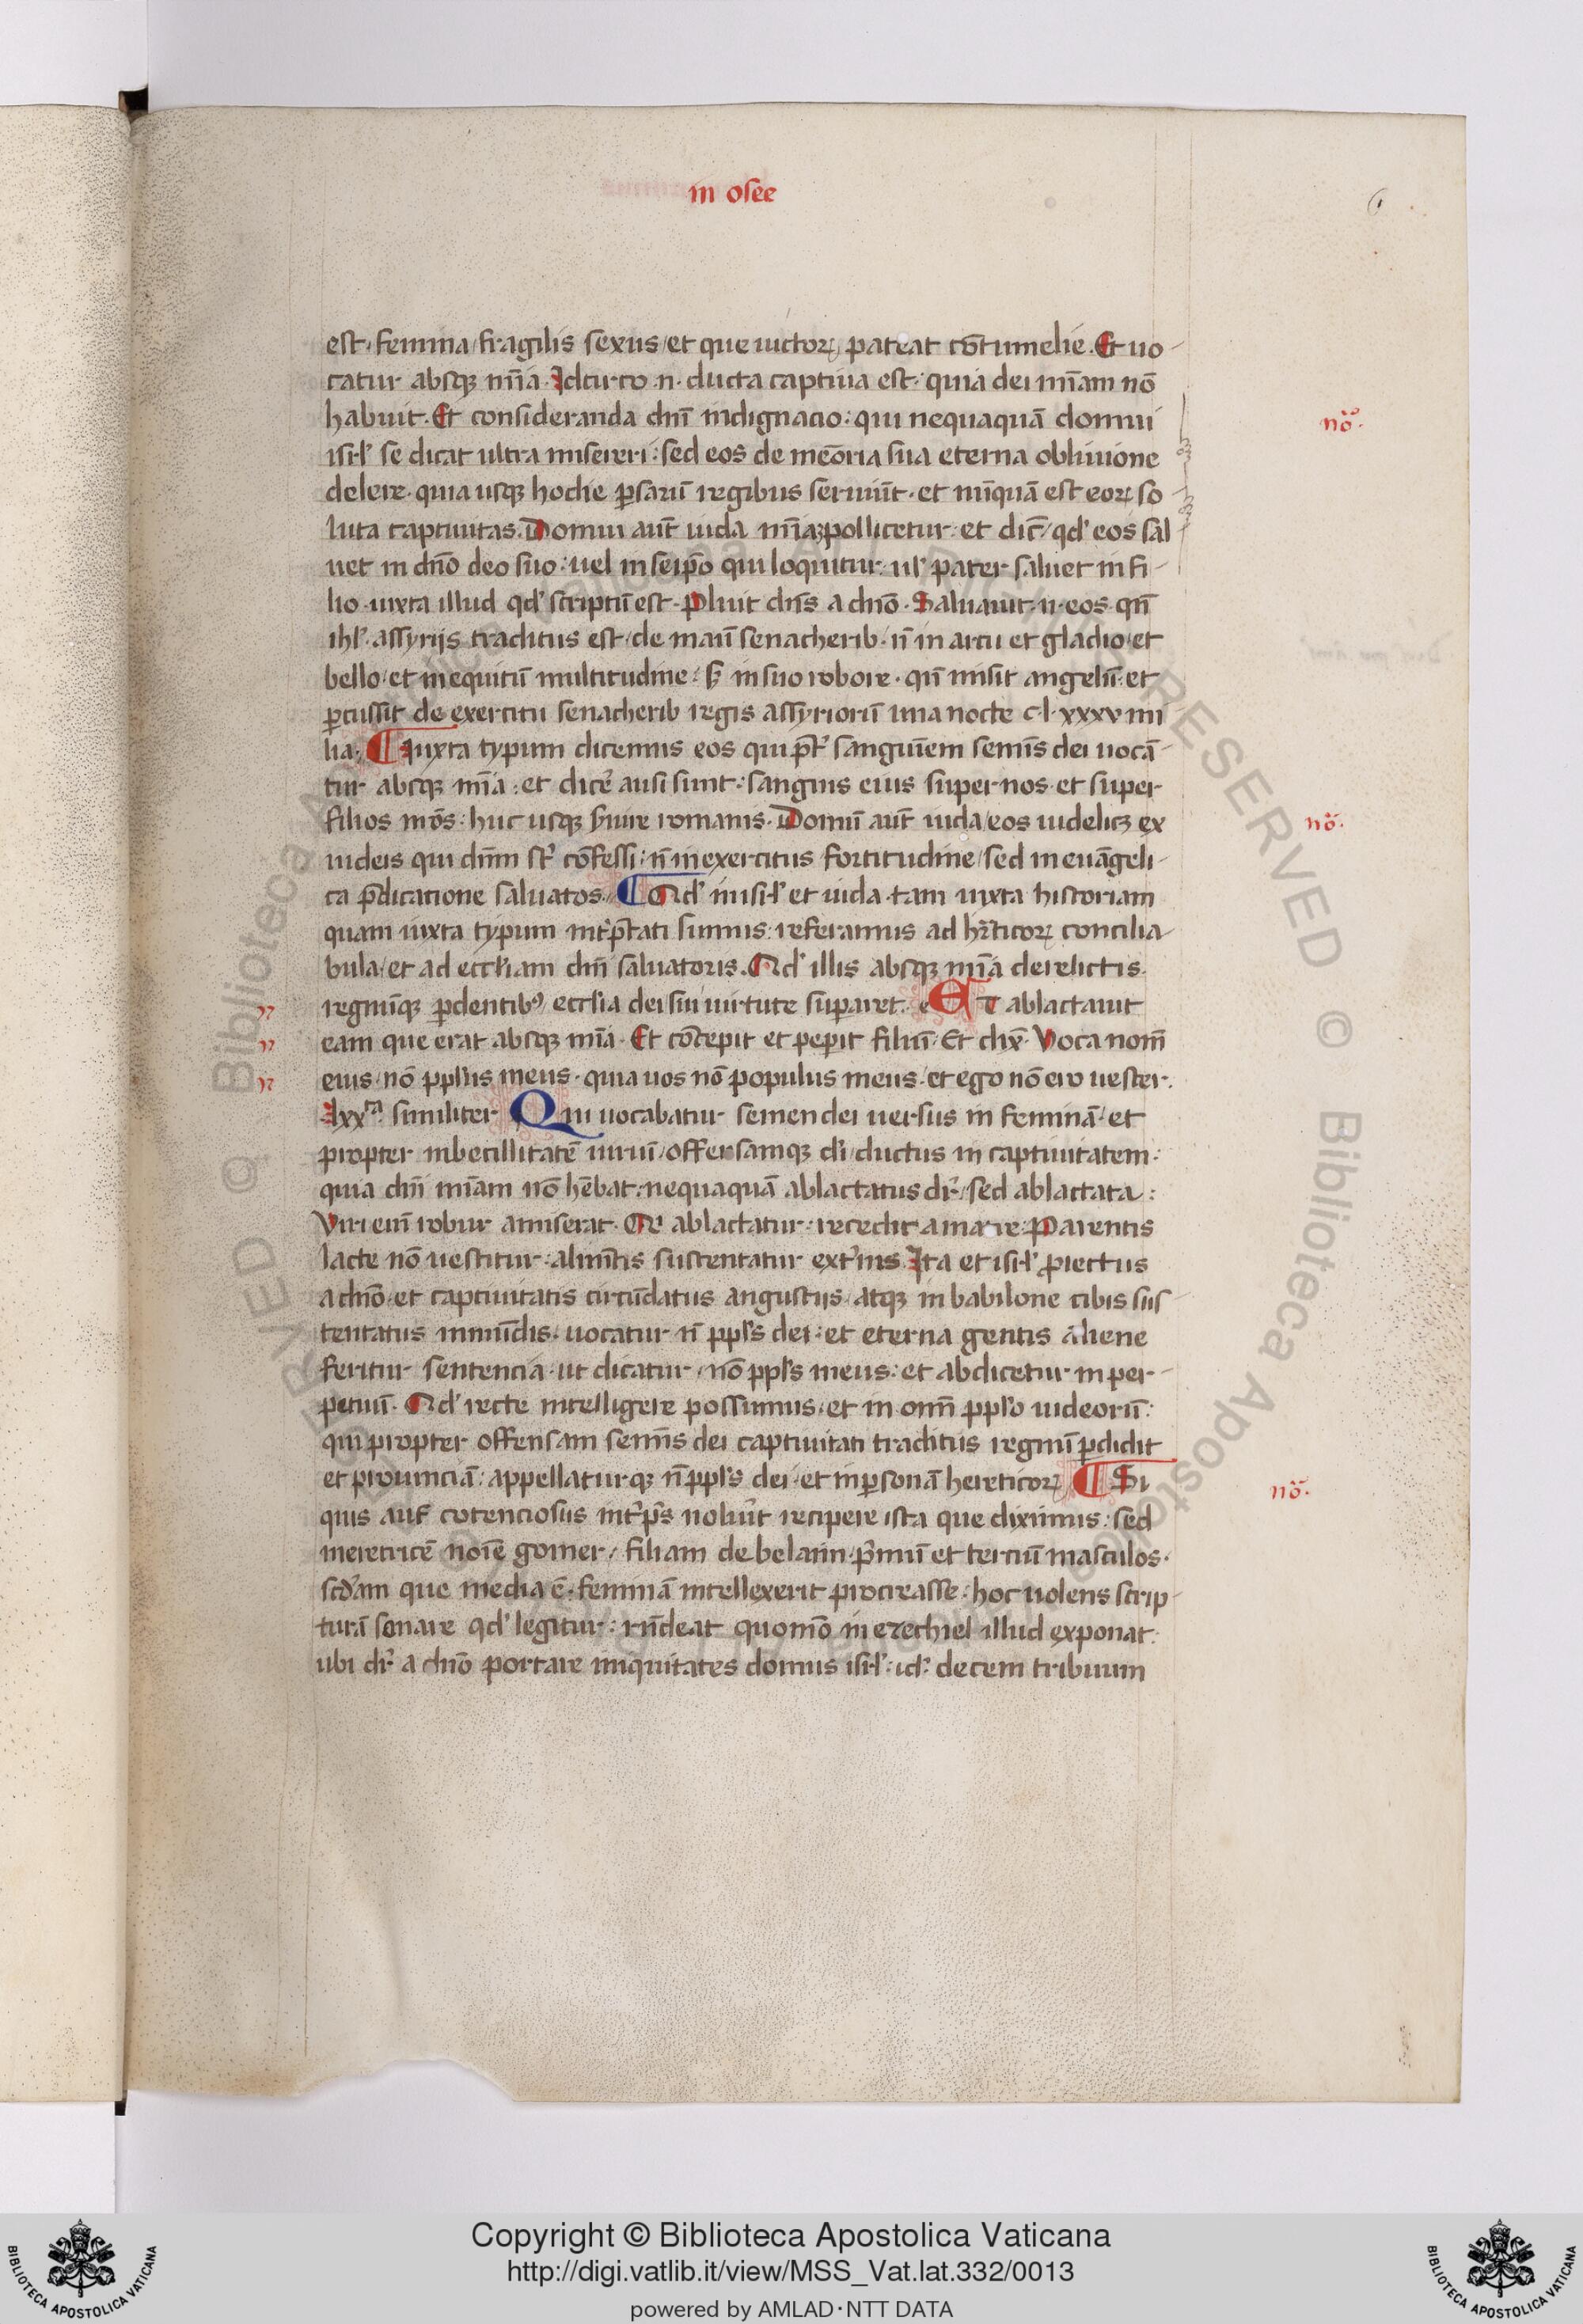 in osee
6
est, femina fragilis sexus, et que victoꝝ pateat cōtumelie. Et uo-
catur absqꝫ mīa. Idcirco .n. ducta captiua est: quia dei mīam nō
habuit. Et consideranda dn̄i indignacio: qui nequaquā domui
isrł se dicat ultra misereri: sed eos de meōria sua eterna obliuione
delere. quia usqꝫ hodie ꝑsarū regibus seruiūt. et nūquā est eoꝝ so-
luta captiuitas. Domui aūt iuda mīaꝫ pollicetur: et dic̄, qd' eos sal
uet in dn̄o deo suo: uel in seip̄o qui loquitur: ul' pater saluet in fi-
lio. iuxta illud qd' scriptū est. Pluit dn̄s a dn̄o. Saluauit .n. eos qn̄
ihl' assyrijs traditus est, de manu senacherib. n̄ in arcu et gladio, et
bello, et in equitū multitudine: s; in suo robore. qn̄ misit angelū et
ꝑcussit de exercitu senacherib regis assyriorū una nocte c.l.xxxv mi
lia. ¶ Iuxta typum dicemus eos qui p̄t' sanguinem semīs dei uocā-
tur absqꝫ mīa: et dic'e ausi sunt: sanguis eius super nos. et super
filios nr̄os: huc usqꝫ s'uire romanis. Domū aūt iuda, eos uidelicꝫ ex
iudeis qui dn̄m st' cōfessi: n̄ in exercitus fortitudine, sed in euāgeli-
ca p̄dicatione saluatos. ¶ Qd' in isrł et iuda. tam iuxta historiam
quam iuxta typum int'p̄tati sumus: referamus ad hr̄ticoꝝ concilia
bula, et ad eccl'iam dn̄i saluatoris. Qd' illis absqꝫ mīa derelictis.
regnūqꝫ ꝑdentibꝰ, eccl'ia dei sui uirtute suꝑaret. Et ablactauit
eam que erat absqꝫ mīa. Et cōcepit et peperit filiū. Et dix̄. Voca nom̄
eius, nō pplus meus. quia uos nō populus meus. et ego nō ero uester.
lxxᵃ. similiter Qui uocabatur semen dei uersus in feminā. et
propter inbecillitatē uirū, offensamqꝫ di, ductus in captiuitatem:
quia dn̄i mīam nō hēbat: nequaquā ablactatus dr̄, sed ablactata:
Viri enī robur amiserat. Qe ablactatur: recedit a matre. Parentis
lacte nō uestitur: alimn̄tis sustentatur ext'nis. Ita et isrł ꝓiectus
a dn̄o, et captiuitatis circūdatus angustijs, atqꝫ in babilone cibis sus
tentatus inmūdis. uocatur n̄ ppl's dei: et eterna gentis aliene
feritur sentencia. ut dicatur, nō ppl's meus: et abdicetur in per-
petuū. Qd' recte intelligere possumus, et in omī ppl'o iudeorū:
qui propter offensam semīs dei captiuitati traditus regnū ꝑdidit
et prouinciā: appellaturqꝫ n̄ ppl's dei. et in ꝑsonā hereticoꝝ ¶ Si
quis aut' cotenciosus int'p̄s noluīt recipere ista que diximus: sed
meretricē noīe gomer, filiam debelaim, p'mū et terciū masculos.
scd'am que media ē. feminā intellexerit procreasse: hoc uolens scrip-
turā sonare qd' legitur: rn̄deat quomō in ezechiel illud exponat:
ubi dr̄ a dn̄o portare iniquitates domus isrł: id' decem tribuum
nō.
nō.
nō.
Copyright © Biblioteca Apostolica Vaticana
http://digi.vatlib.it/view/MSS_Vat.lat.332/0013
powered by AMLAD·NTT DATA
BIBLIOTECA APOSTOLICA VATICANA
BIBLIOTECA APOSTOLICA VATICANA